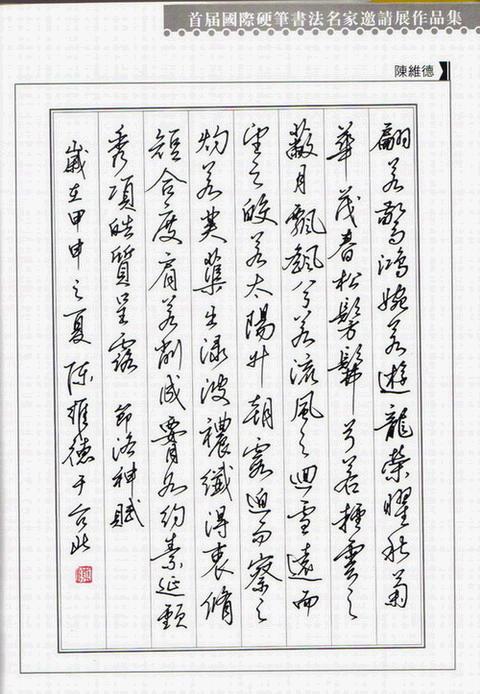 首届國際硬筆書法名家邀請展作品集
陳維德
翩若驚鴻婉若遊龍榮曜秋菊
華茂春松髣髴兮若輕雲之
蔽月飄颻兮若流風之迴雪遠而
望之皎若太陽升朝霞迫而察之
灼若芙蕖出渌波穠纖得衷脩
短合度肩若削成腰如約素延頸
秀項皓質呈露 節洛神賦
歲在甲申之夏 陳維德于台北